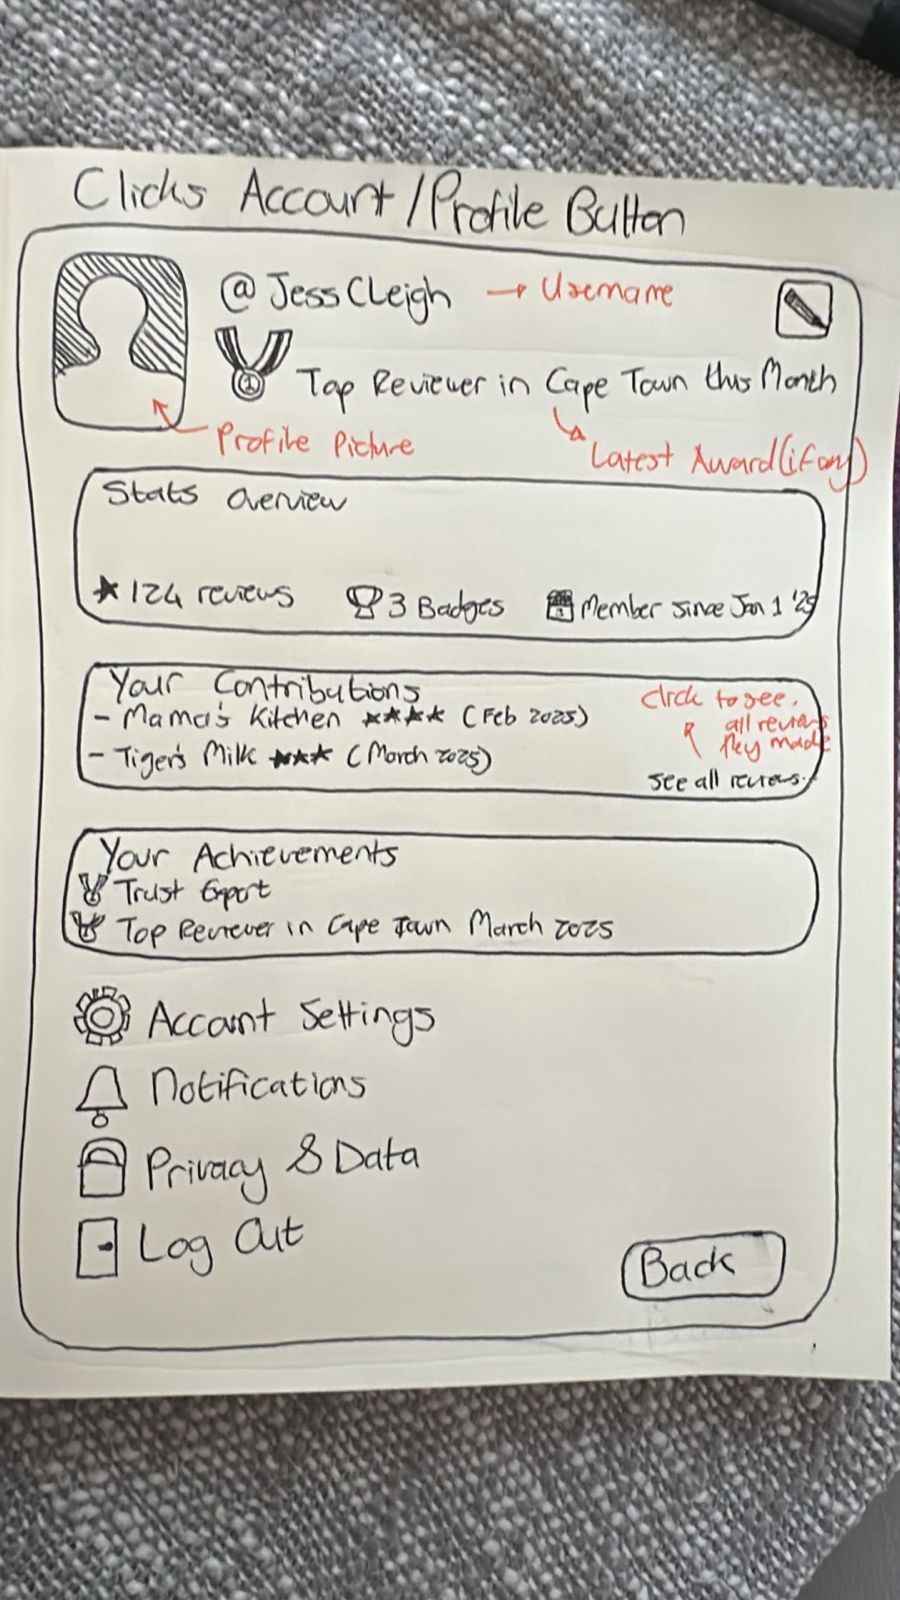 Clicks Account/Profile Button
@JessCLeigh → Username
1 Top Reviewer in Cape Town this Month
Profile Picture
Latest Award (if any)
Stats Overview
★ 124 reviews
3 Badges
Member since Jan 1 '25
Your Contributions
- Mama's Kitchen ★★★★ (Feb 2025)
- Tiger's Milk ★★★ (March 2025)
Click to see.
all reviews
they made
See all reviews.
Your Achievements
Trust Expert
Top Reviewer in Cape Town March 2025
Account Settings
Notifications
Privacy & Data
Log Out
Back